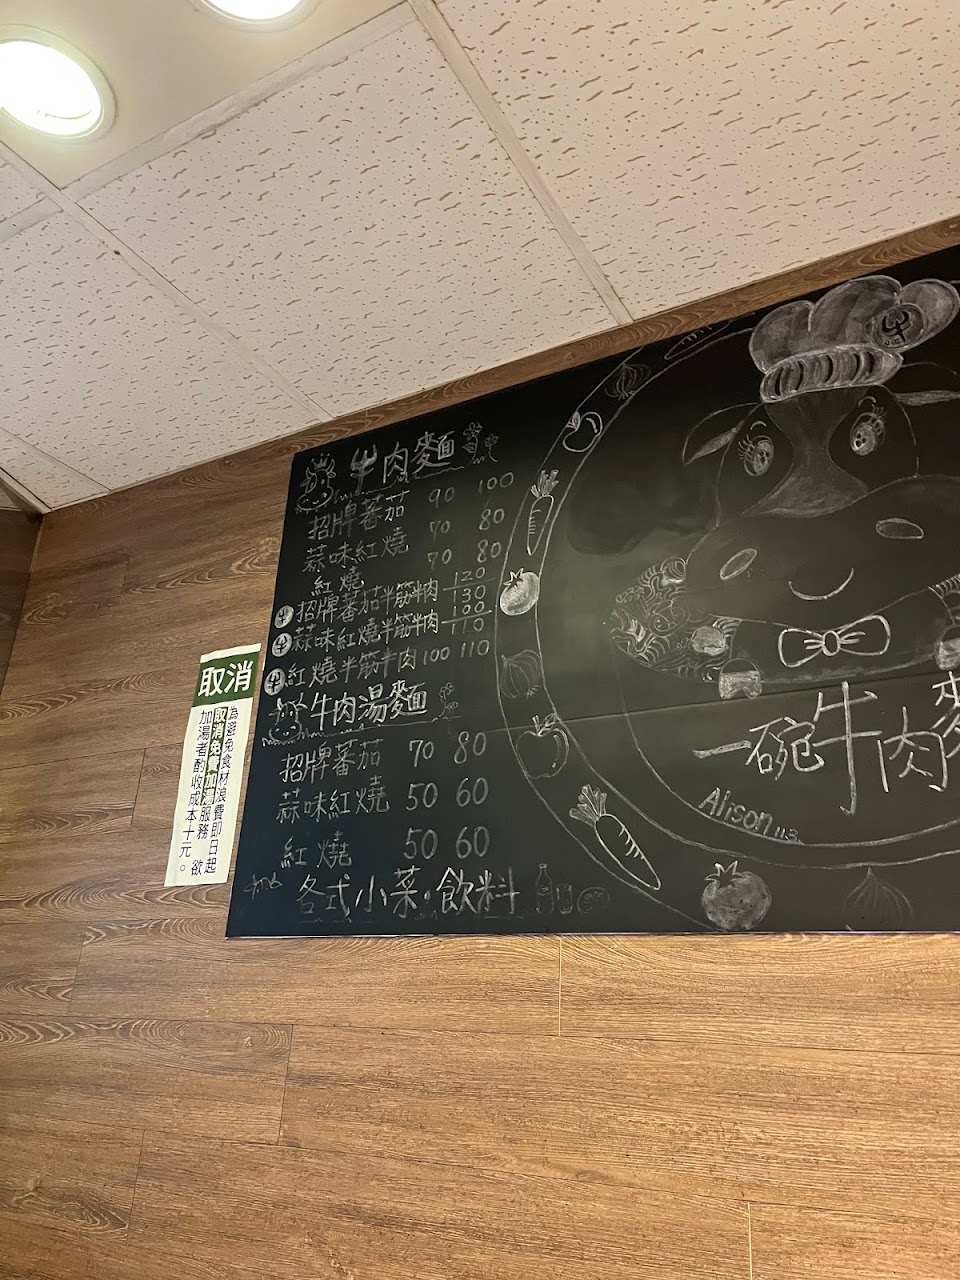 牛肉麵
招牌蕃茄 90 100
蒜味紅燒 70 80
紅燒 70 80
牛 招牌蕃茄半筋半肉 120 130
牛 蒜味紅燒半筋半肉 100 110
牛 紅燒半筋半肉 100 110
牛肉湯麵
招牌蕃茄 70 80
蒜味紅燒 50 60
紅燒 50 60
各式小菜·飲料
取消
為避免食材浪費即日起
取消免費加湯服務 欲
加湯者酌收成本十元。
牛
一碗牛肉麥
Alison 113.